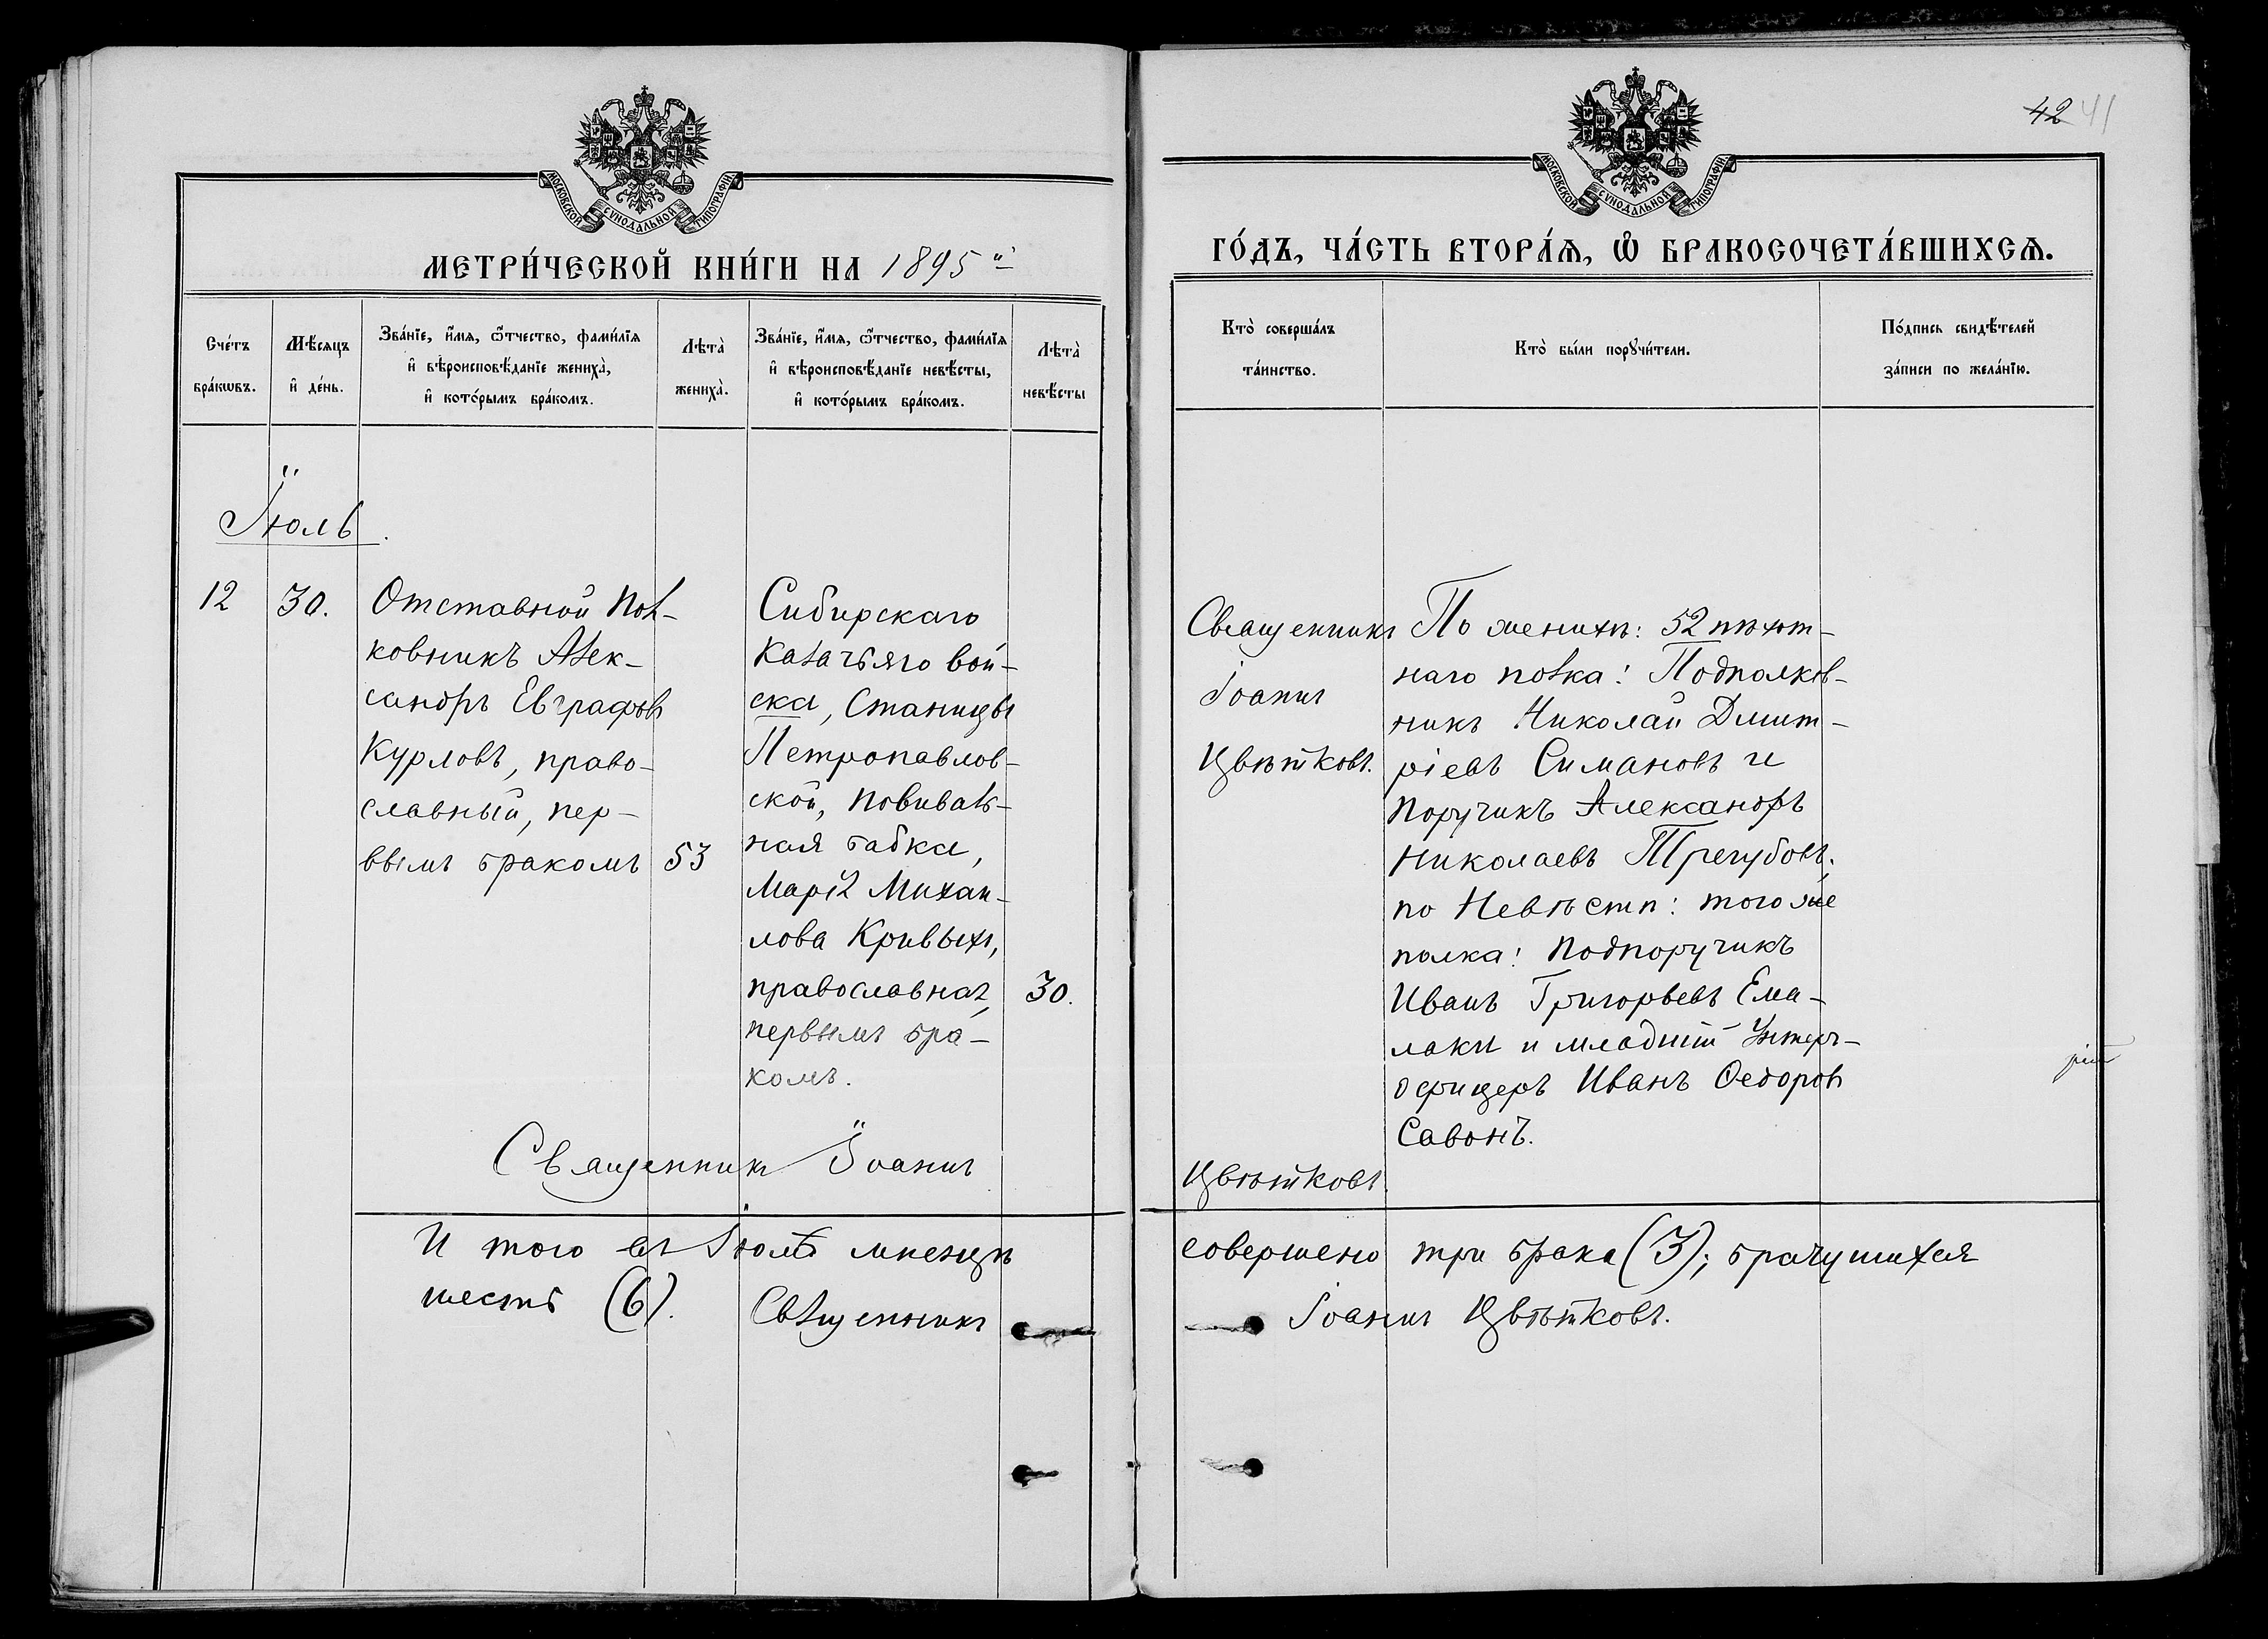 42 41
МОСКОВСКОЙ СѴНОДАЛЬНОЙ ТИПОГРАФІИ
МОСКОВСКОЙ СѴНОДАЛЬНОЙ ТИПОГРАФІИ
МЕТРИ́ЧЕСКОЙ КНИ́ГИ НА 1895й
ГО́ДЪ, ЧА́СТЬ ВТОРА́Ѧ, Ѡ҆ БРАКОСОЧЕТА́ВШИХСѦ.
Сче́тъ
бра́кѡвъ.
Мѣ́сяцъ
и҆ де́нь.
Зва́нїе, и҆́мѧ, ѻ҆́тчество, фами́лїѧ
и҆ вѣроисповѣ́данїе жениха̀,
и҆ кото́рымъ бра́комъ.
Лѣта̀
жениха̀.
Зва́нїе, и҆́мѧ, ѻ҆́тчество, фами́лїѧ
и҆ вѣроисповѣ́данїе невѣ́сты,
и҆ кото́рымъ бра́комъ.
Лѣта̀
невѣ́сты
Кто̀ соверша́лъ
та́инство.
Кто̀ бы́ли порꙋчи́тели.
По́дпись свидѣ́телей
за́писи по жела́нїю.
Іюль.
12
30.
Отставной Пол-
ковникъ Алек-
сандръ Евграфовъ
Курловъ, право-
славный, пер-
ввымъ бракомъ
53
Сибирскаго
Казачьяго вой-
ска, Станицы
Петропавлов-
ской, повиваль-
ная бабка,
Марія Михаи-
лова Кривыхъ,
православная,
первымъ бра-
комъ.
30.
Священникъ
Іоаннъ
Цвѣтковъ.
По женихѣ: 52 пѣхот-
наго полка: Подполков-
никъ Николай Дмит-
ріевъ Симановъ и
Поручикъ Александръ
Николаевъ Трегубовъ;
по Невѣстѣ: того же
полка: Подпоручикъ
Иванъ Григорьевъ Ема-
лаки и младшій Унтеръ-
офицеръ Иванъ Ѳедоровъ
Савонъ.
Священникъ Іоаннъ Цвѣтковъ.
И того въ Іюлѣ мѣсяцѣ совершено три брака (3); брачущихся
шесть (6). Священникъ Іоаннъ Цвѣтковъ.